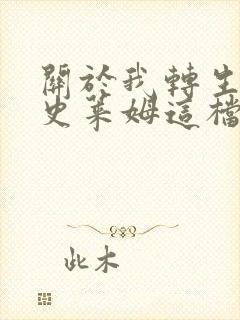 關於我轉生
史萊姆這檔
此木